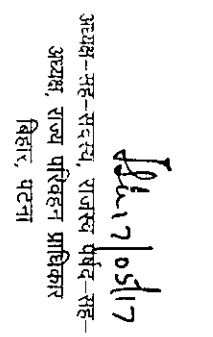 27/05/17
अध्यक्ष-सह-सदस्य, राजस्व पर्षद-सह-
अध्यक्ष, राज्य परिवहन प्राधिकार
बिहार, पटना